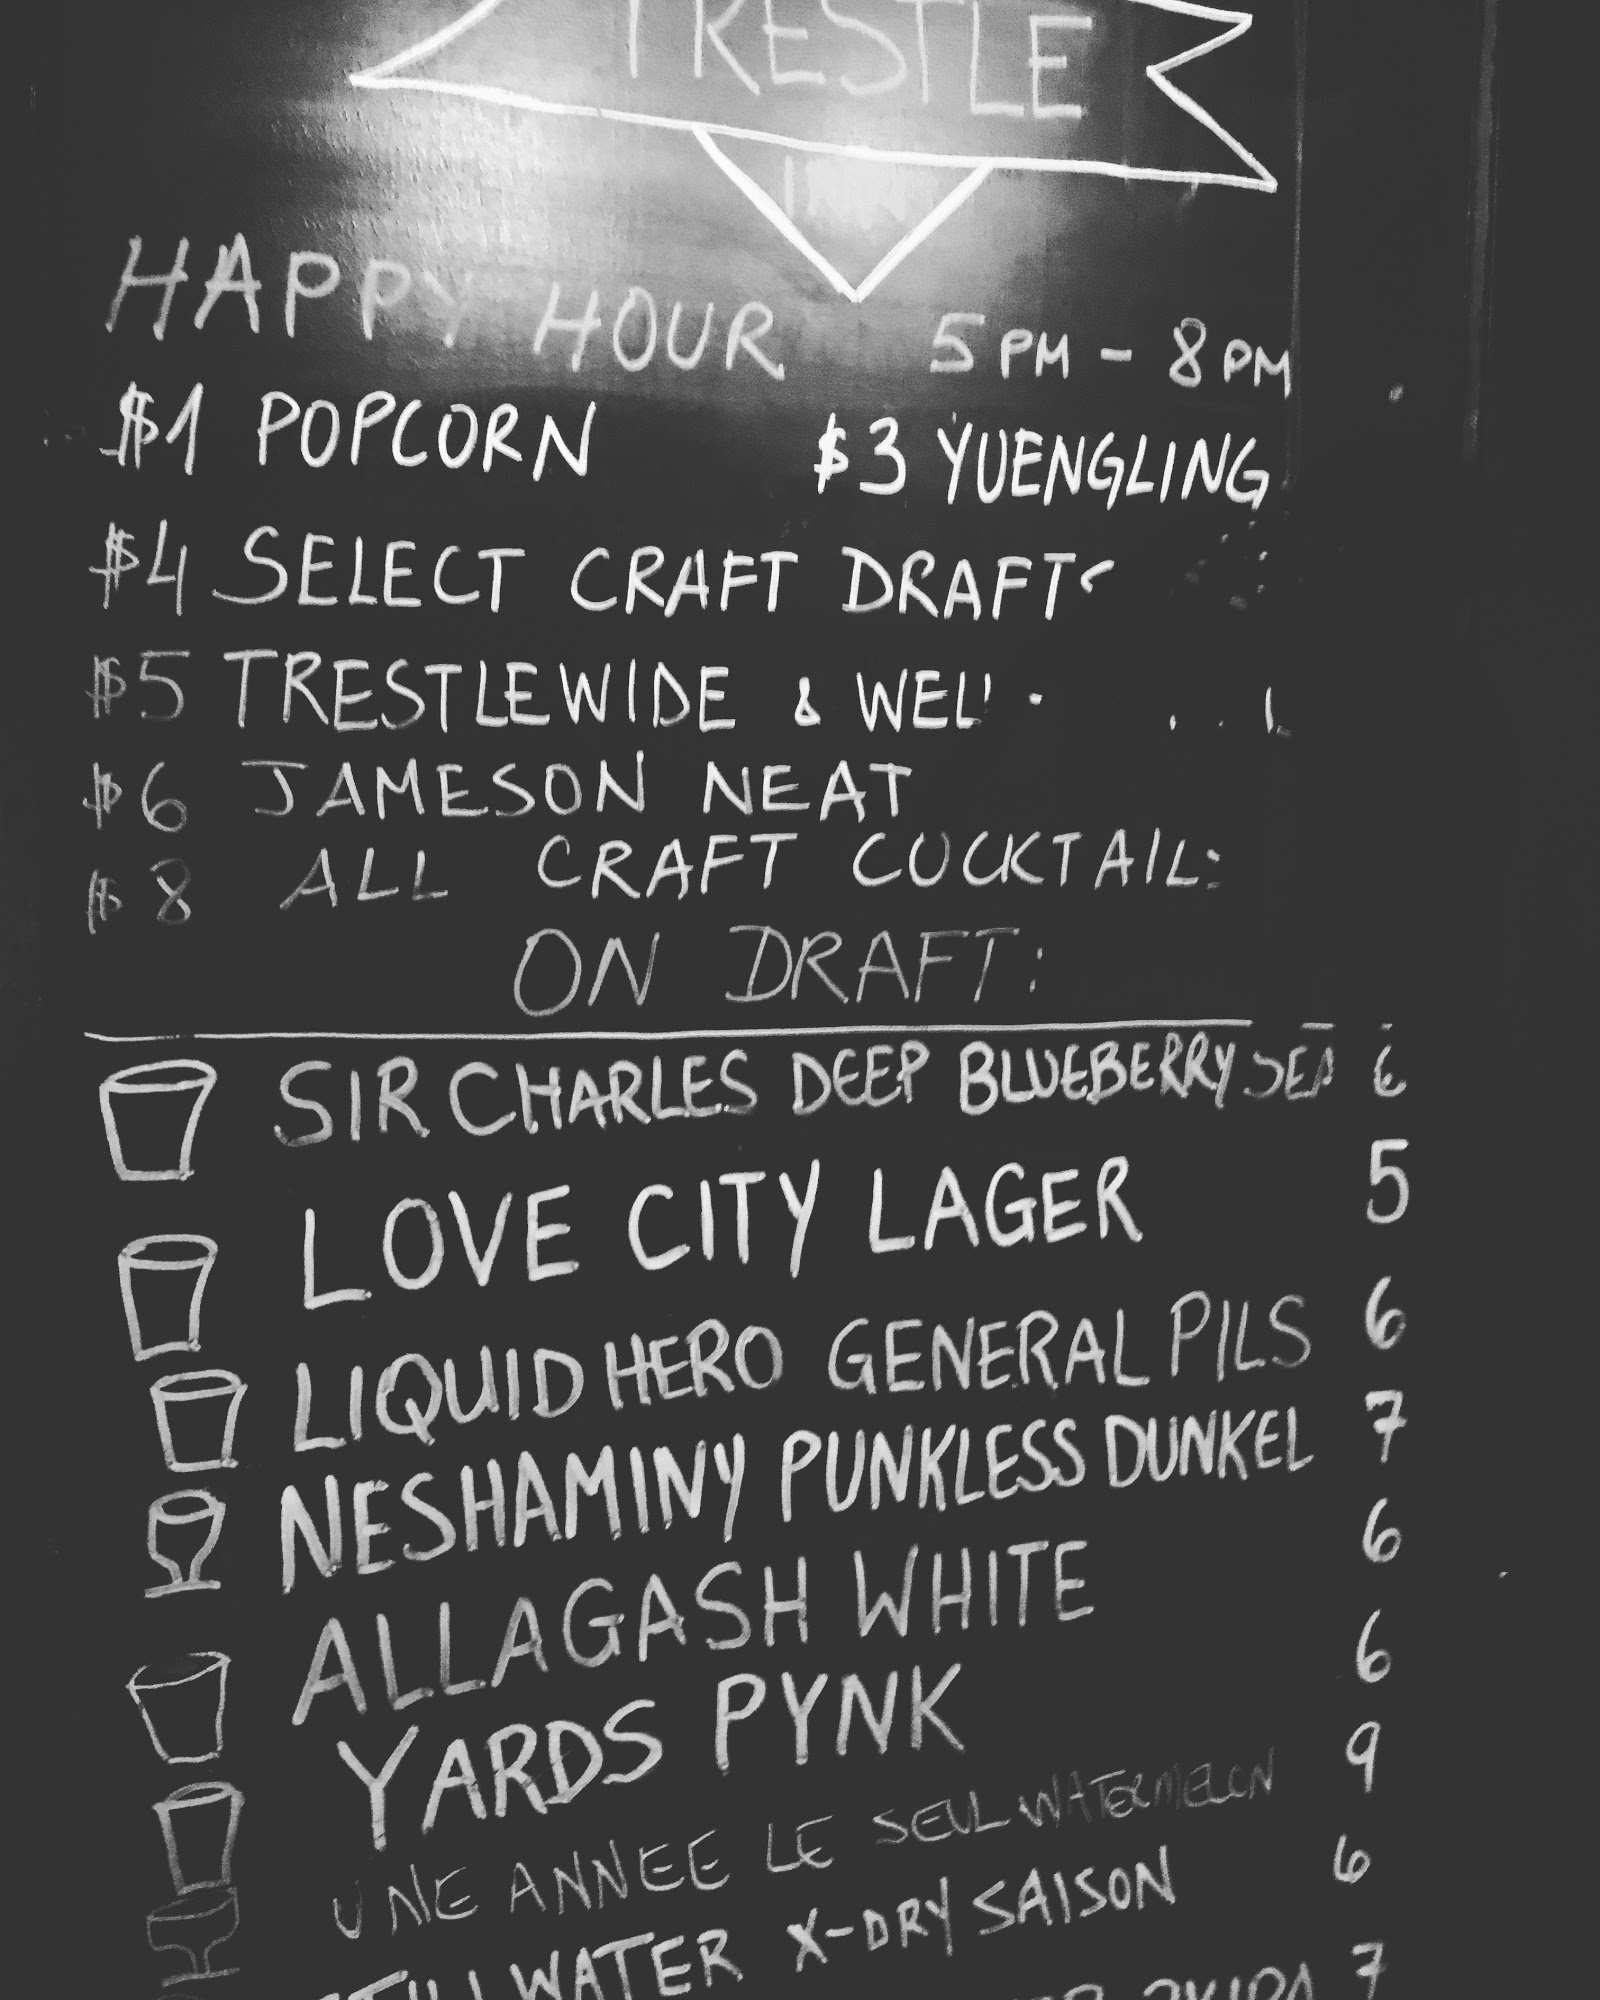 TRESTLE
INN
HAPPY HOUR 5 PM - 8 PM
$1 POPCORN $3 YUENGLING
$4 SELECT CRAFT DRAFTS
$5 TRESTLEWIDE & WELL
$6 JAMESON NEAT
$8 ALL CRAFT COCKTAILS
ON DRAFT:
SIR CHARLES DEEP BLUEBERRY SEA 6
LOVE CITY LAGER 5
LIQUID HERO GENERAL PILS 6
NESHAMINY PUNKLESS DUNKEL 7
ALLAGASH WHITE 6
YARDS PYNK 6
UNE ANNEE LE SEUL WATERMELON 9
STILLWATER X-DRY SAISON 6
7